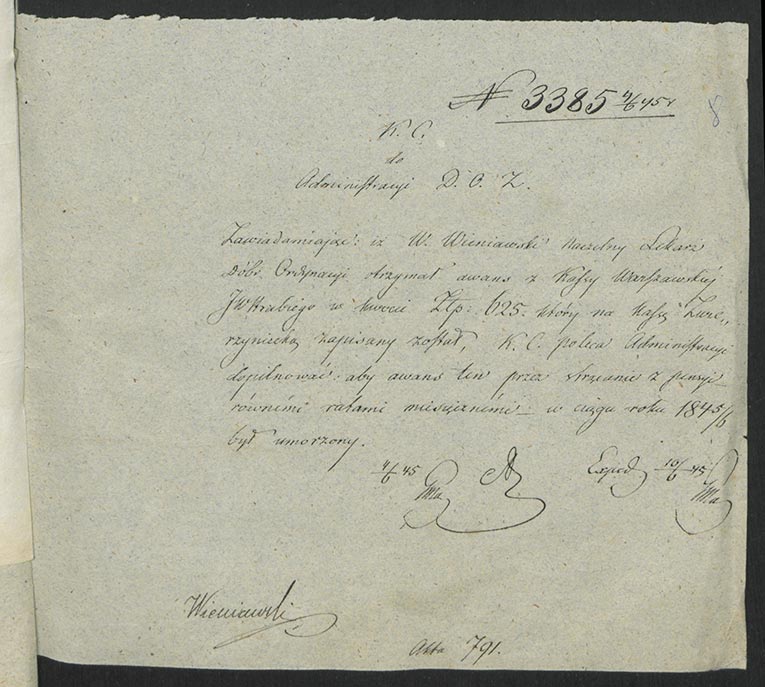 N 3385 4/6 45 r
8
K. C.
do
Administracyi D. O. Z.
Zawiadamiając: iż W. Wieniawski Naczelny Lekarz
Dóbr Ordynacyi otrzymał awans z Kassy Warszawskiéj
JWHrabiego w kwocie Złp: 625. który na Kassę Zwie„
rzyniecką zapisany został, K. C. poleca Administracyi
dopilnować: aby awans ten przez strącanie z pensyi
równémi ratami miesięcznémi w ciągu roku 1845/6
był umorzony.
4/6 45 Exped 10/6 45
Wieniawski
Akta 791.